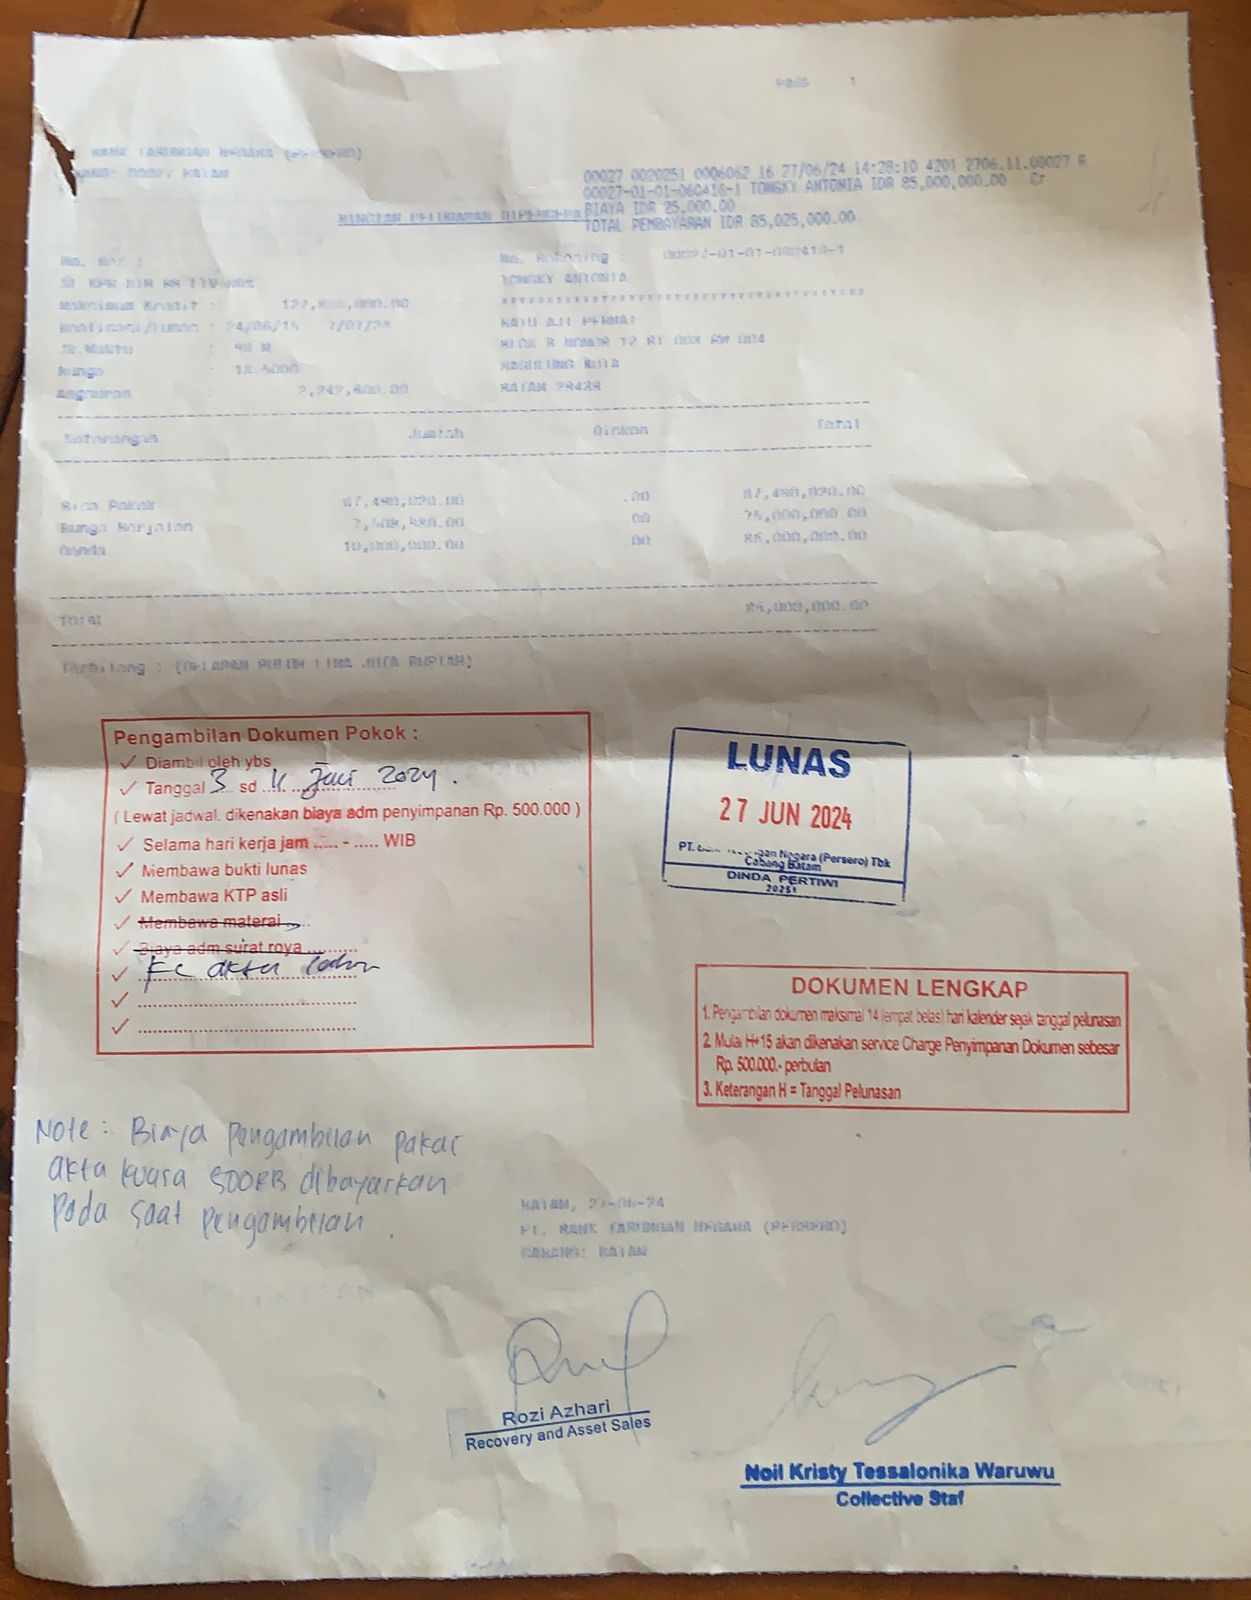 PAGE 1
BANK TABUNGAN NEGARA (PERSERO)
CABANG: 00027 BATAM
00027 0020251 0006062 16 27/06/24 14:28:10 4201 2706.11.00027 R
00027-01-01-060416-1 TONGKY ANTONIA IDR 85,000,000.00 Cr
BIAYA IDR 25,000.00
TOTAL PEMBAYARAN IDR 85,025,000.00
RINCIAN PELUNASAN DIPERCEPAT
No. Rekening : 00027-01-01-060416-1
TONGKY ANTONIA
Maksimum Kredit :
Realisasi/Lunas :
BATU AJI PERMAI
BLOK B NOMOR 12 RT 003 RW 004
Jk.Waktu :
SAGULUNG KOTA
Bunga :
Angsuran
BATAM 29439
Keterangan Jumlah Diskon Total
Sisa Pokok .00
Bunga Berjalan .00
Denda 10,000,000.00 .00
TOTAL 85,000,000.00
Terbilang : (DELAPAN PULUH LIMA JUTA RUPIAH)
Pengambilan Dokumen Pokok :
✓ Diambil oleh ybs
✓ Tanggal 3 sd 11 Juli 2024.
( Lewat jadwal, dikenakan biaya adm penyimpanan Rp. 500.000 )
✓ Selama hari kerja jam ..... - ..... WIB
✓ Membawa bukti lunas
✓ Membawa KTP asli
✓ Membawa materai
✓ Biaya adm surat roya ..........
✓ FC akta
✓ ........................................
✓ ........................................
LUNAS
27 JUN 2024
PT. Bank Tabungan Negara (Persero) Tbk
Cabang Batam
DINDA PERTIWI
20251
DOKUMEN LENGKAP
1. Pengambilan dokumen maksimal 14 (empat belas) hari kalender sejak tanggal pelunasan
2. Mulai H+15 akan dikenakan service Charge Penyimpanan Dokumen sebesar
Rp. 500.000.- perbulan
3. Keterangan H = Tanggal Pelunasan
Note : Biaya pengambilan pakai
akta kuasa 500RB dibayarkan
pada saat pengambilan.
BATAM, 27-06-24
PT. BANK TABUNGAN NEGARA (PERSERO)
CABANG: BATAM
Rozi Azhari
Recovery and Asset Sales
Noil Kristy Tessalonika Waruwu
Collective Staf